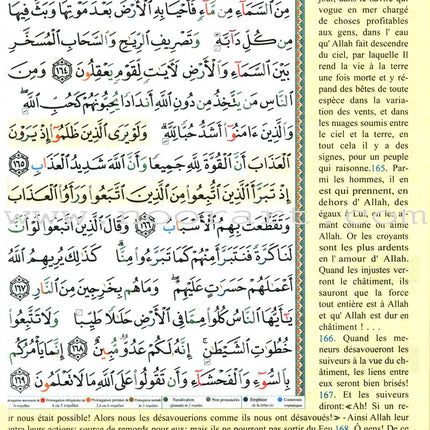 مِنَ السَّمَاءِ مِن مَّاءٍ فَأَحْيَا بِهِ الْأَرْضَ بَعْدَ مَوْتِهَا وَبَثَّ فِيهَا
مِن كُلِّ دَابَّةٍ وَتَصْرِيفِ الرِّيَاحِ وَالسَّحَابِ الْمُسَخَّرِ
بَيْنَ السَّمَاءِ وَالْأَرْضِ لَآيَاتٍ لِّقَوْمٍ يَعْقِلُونَ ١٦٤ وَمِنَ
النَّاسِ مَن يَتَّخِذُ مِن دُونِ اللَّهِ أَندَادًا يُحِبُّونَهُمْ كَحُبِّ اللَّهِ
وَالَّذِينَ ءَامَنُوا أَشَدُّ حُبًّا لِّلَّهِ وَلَوْ يَرَى الَّذِينَ ظَلَمُوا إِذْ يَرَوْنَ
الْعَذَابَ أَنَّ الْقُوَّةَ لِلَّهِ جَمِيعًا وَأَنَّ اللَّهَ شَدِيدُ الْعَذَابِ ١٦٥
إِذْ تَبَرَّأَ الَّذِينَ اتُّبِعُوا مِنَ الَّذِينَ اتَّبَعُوا وَرَأَوُا الْعَذَابَ
وَتَقَطَّعَتْ بِهِمُ الْأَسْبَابُ ١٦٦ وَقَالَ الَّذِينَ اتَّبَعُوا لَوْ أَنَّ
لَنَا كَرَّةً فَنَتَبَرَّأَ مِنْهُمْ كَمَا تَبَرَّءُوا مِنَّا كَذَلِكَ يُرِيهِمُ اللَّهُ
أَعْمَالَهُمْ حَسَرَاتٍ عَلَيْهِمْ وَمَا هُم بِخَارِجِينَ مِنَ النَّارِ ١٦٧
يَا أَيُّهَا النَّاسُ كُلُوا مِمَّا فِي الْأَرْضِ حَلَالًا طَيِّبًا وَلَا تَتَّبِعُوا
خُطُوَاتِ الشَّيْطَانِ إِنَّهُ لَكُمْ عَدُوٌّ مُّبِينٌ ١٦٨ إِنَّمَا يَأْمُرُكُم
بِالسُّوءِ وَالْفَحْشَاءِ وَأَن تَقُولُوا عَلَى اللَّهِ مَا لَا تَعْلَمُونَ ١٦٩
vogue en mer chargé
de choses profitables
aux gens, dans l' eau
qu' Allah fait descendre
du ciel, par laquelle Il
rend la vie à la terre
une fois morte et y ré-
pand des bêtes de toute
espèce dans la varia-
tion des vents, et dans
les nuages soumis entre
le ciel et la terre, en
tout cela il y a des
signes, pour un peuple
qui raisonne.165. Par-
mi les hommes, il en
est qui prennent, en
dehors d' Allah, des
égaux à Lui, en les ai-
mant comme on aime
Allah. Or les croyants
sont les plus ardents
en l'amour d' Allah.
Quand les injustes ver-
ront le châtiment, ils
sauront que la force
tout entière est à Allah
et qu' Allah est dur en
châtiment ! . . .
166. Quand les me-
neurs désavoueront les
suiveurs à la vue du châ-
timent, les liens entre
eux seront bien brisés!
167. Et les suiveurs
diront:<Ah! Si un re-
ur nous était possible! Alors nous les désavouerions comme ils nous ont désavoués!> -Ainsi Allah leur
ntrera leurs actions; source de remords pour eux; mais ils ne pourront pas sortir du Feu.168. Ô gens! De ce